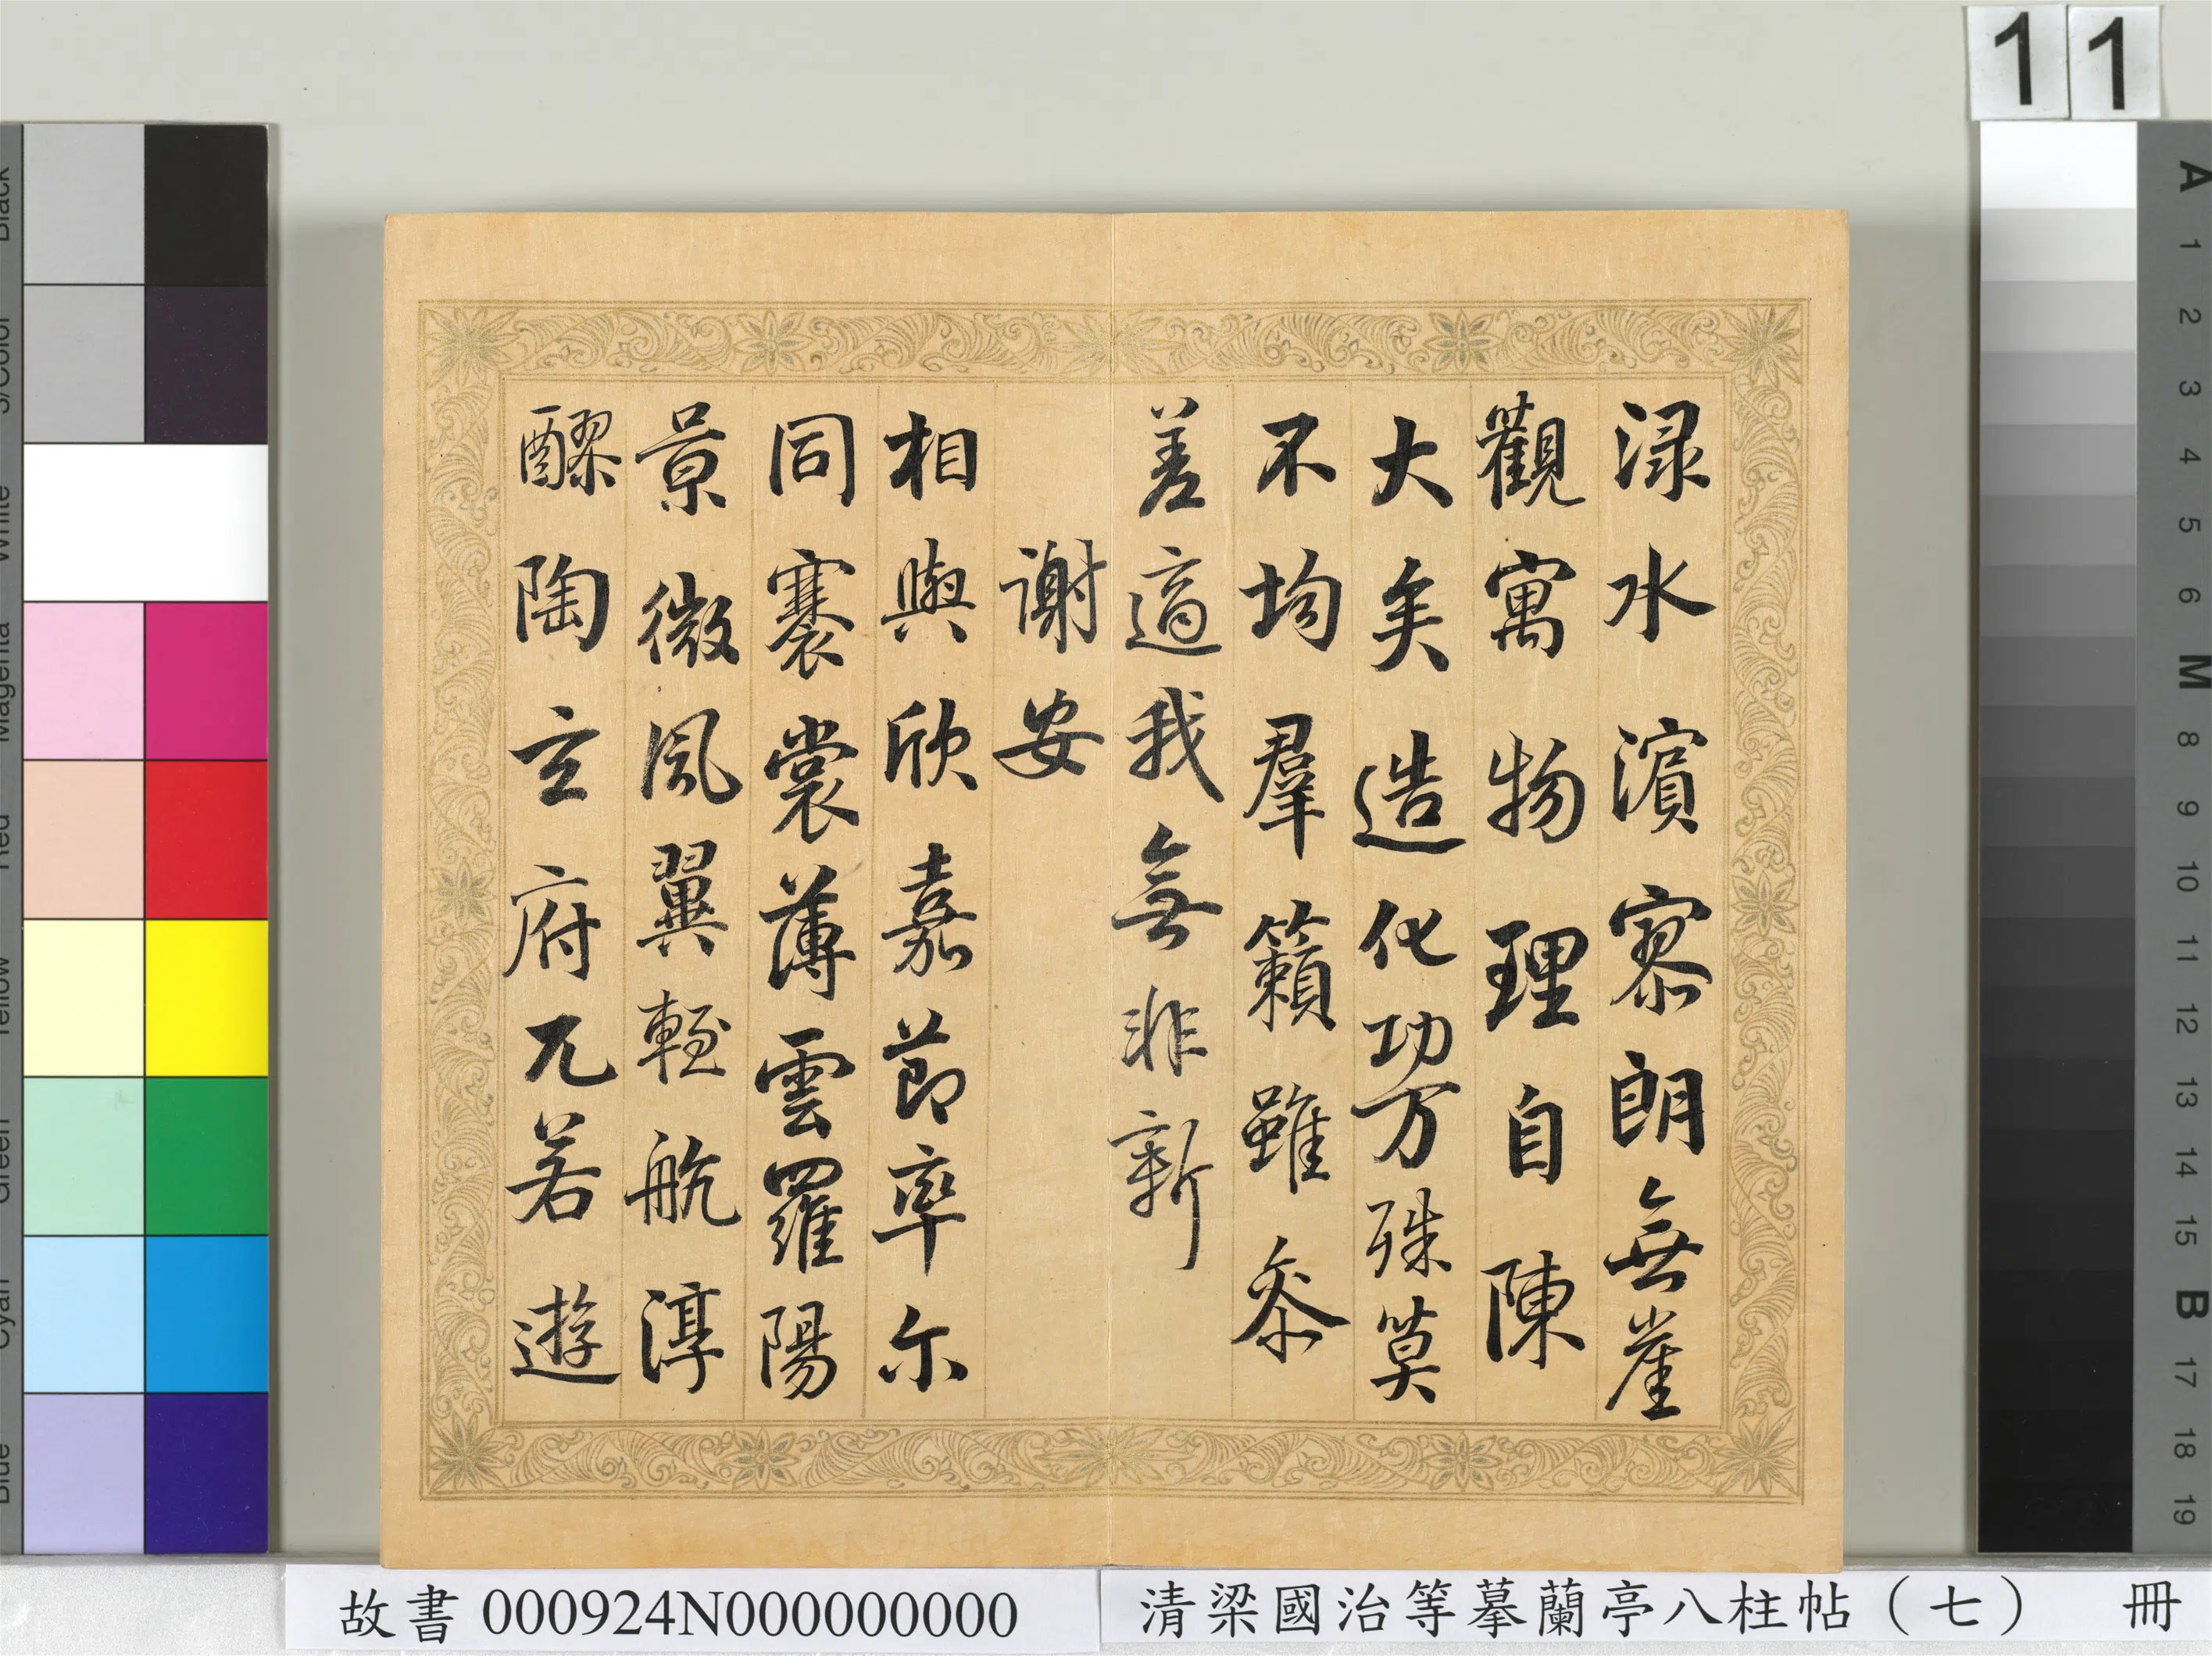 渌水濱寥朗無崖
觀寓物理自陳
大矣造化功万殊莫
不均羣籟雖叅
差適我無非新
謝安
相與欣嘉節率尔
同褰裳薄雲羅陽
景微風翼輕航淳
醪陶玄府兀若遊
11
故書 000924N000000000
清梁國治等摹蘭亭八柱帖（七） 冊
A
1
2
3
4
5
6
M
8
9
10
11
12
13
14
15
B
17
18
19
Black
3/Color
White
Magenta
Red
Yellow
Green
Cyan
Blue